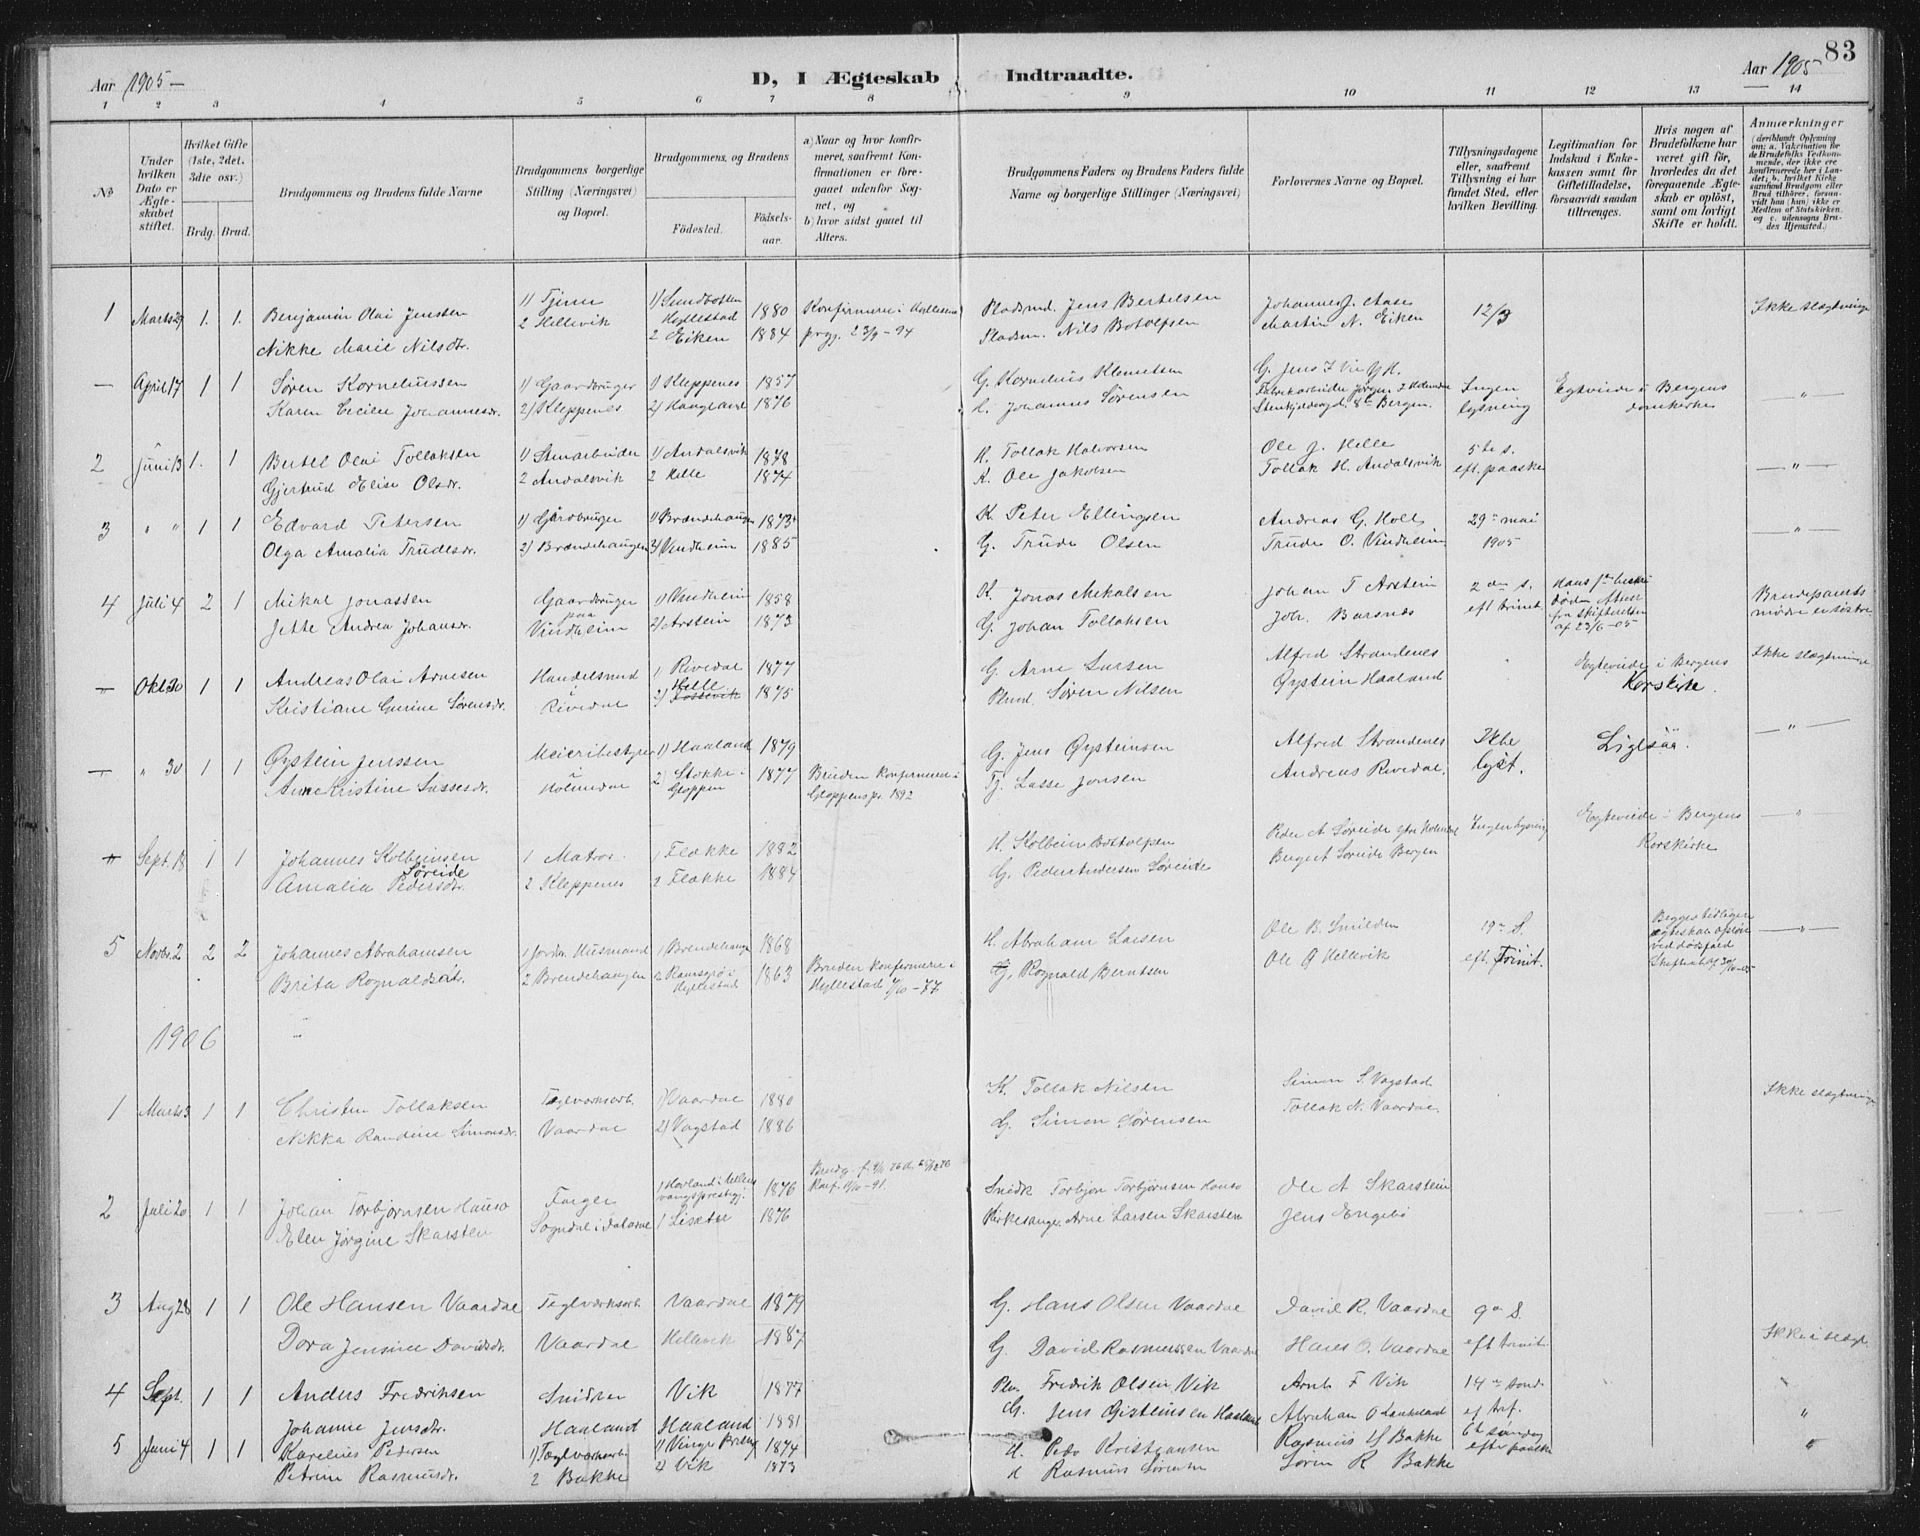 83
Aar 1905 —
D, I Ægteskab Indtraadte.
Aar 1905
1 2 3 4 5 6 7 8 9 10 11 12 13 14
№
Under hvilken Dato er Ægteskabet stiftet.
Hvilket Gifte (1ste, 2det, 3die osv.)
Brdg. Brud.
Brudgommens og Brudens fulde Navne
Brudgommens borgerlige Stilling (Næringsvei) og Bopæl.
Brudgommens, og Brudens
Födested.
Födsels-aar.
a) Naar og hvor konfirmeret, saafremt Konfirmationen er foregaaet udenfor Sognet, og
b) hvor sidst gaaet til Alters.
Brudgommens Faders og Brudens Faders fulde Navne og borgerlige Stillinger (Næringsvei)
Forlovernes Navne og Bopæl.
Tillysningsdagene eller, saafremt Tillysning ei har fundet Sted, efter hvilken Bevilling.
Legitimation for Indskud i Enkekassen samt for Giftetilladelse, forsaavidt saadan tiltrænges.
Hvis nogen af Brudefolkene har været gift før, hvorledes da det foregaaende Ægteskab er opløst, samt om lovligt Skifte er holdt.
Anmærkninger
(deriblandt Oplysning om: a. Vakcination for de Brudefolks Vedkommende, der ikke ere konfirmerede her i Landet; b. hvilket Kirkesamfund Brudgom eller Brud tilhører, forsaavidt han (hun) ikke er Medlem af Statskirken, og c. udensogns Brudes Hjemsted.)
1 Marts 29 1. 1. Benjamin Olai Jensen 1) Tjener 1) Sundbotten Hyllestad 1880 Konfirmeret i Hyllestad Pladsmd. Jens Bertelsen Johannes J. Aase 12/3 Ikke slægtninge
Nikke Marie Nilsdr. 2 Hellevik 2 Eiken 1884 prgj. 23/9 - 94 Pladsm. Nils Botolfsen Martin N. Eiken
— April 17 1 1 Søren Korneliussen 1) Gaardbruger 1) Kleppenes 1857 G. Kornelius Klemetsen G. Jens J Vie Ingen Egteviede i Bergens — " —
Karen Cecilie Johannesdr. 2) Kleppenes 2) Haugland 1876 H. Johannes Sørensen Fabrikarbeider Jørgen J Bergen. lysning domkirke
2 Juni 13 1. 1 Bertel Olai Tollaksen 1) Stenarbeider 1) Andalsvik 1878 K. Tollak Halvorsen Ole J. Hille 5te s. — " —
Gjertrud Elise Olsdr. 2 Andalsvik 2 Hille 1874 K. Ole Jakobsen Tollak H. Andalsvik eft. paaske
3 " " 1 1 Edvard Petersen 1) Gårdbruger 1) Brændehaugen 1873 K. Peter Ellingsen Andreas G. Holl 29de mai — " —
Olga Amalia Trudesdr. 2) Brændehaugen 2) Vindheim 1885 G. Trude Olsen Trude O. Vindheim 1905
4 Juli 4 2 1 Mikal Jonassen Gaardbruger 1) Vindheim 1858 K. Jonas Mikalsen Johan T Arstein 2den s. Hans døden Attest Brudeparets
Jette Andrea Johansdr. paa Vindheim 2) Arstein 1873 G. Johan Tollaksen Joh. Barsnes eft trinit. fra Skifteretten af 23/6-05 mødre er søstre
— Okt 30 1 1 Andreas Olai Arnesen Handelsmd 1. Rivedal 1877 G. Arne Larsen Alfred Strandenes Egteviede i Bergens Ikke slægtninge
Kristiane Gurine Sørensdr. i Rivedal 2) Hille 1875 Plmd. Søren Nilsen Øystein Haaland Korskirke.
— " 30 1 1 Øystein Jenssen Meieribestyrer 1) Haaland 1879 G. Jens Øysteinsen Alfred Strandenes Ikke Ligesaa. — " —
Anne Kristine Lassesdr. i Holmedal 2) Stokke i Gloppen 1877 Bruden konfirmeret i Gloppens pr. 1892 Tj. Lasse Jonsen Andreas Rivedal lyst.
Sept. 18 1 1 Johannes Kolbeinsen 1 Matros 1 Flekke 1882 H. Kolbein Botolfsen Peder A Søreide Ingen lysning Egteviede i Bergens — " —
Amalia Pedersdr. Søreide 2 Kleppenes 2 Flekke 1884 G. Peder Andersen Søreide Berget Søreide Bergen Korskirke
5 Novbr. 2 2 2 Johannes Abrahamsen 1 Husmand 1 Brendehaugen 1868 H. Abraham Larsen Ole B. Smilden 19de S. Begges tidligere ægteskab opløst — " —
Brita Rognaldsdt. 2 Brendehaugen 2 Ramsgrø i Hyllestad 1863 Bruden konfermeret i Hyllestad 7/10 - 77 G. Rognald Berntsen Ole G Hellevik eft. Trinit. ved dødsfald
1906 "
1 Marts 3 1 1 Christen Tollaksen Teglverksarb. 1) Vaardal 1880 K. Tollak Nilsen Simon S. Vagstad Ikke slægtninge
Nikka Randine Simonsdr. Vaardal 2) Vagstad 1886 G. Simon Sørensen Tollak N. Vaardal.
2 Juli 20 1 1 Johan Torbjørnsen Hauso Farger 1 Hovland i Ullensvangs prestegj. 1876 Konf. 11/10 - 91. Snedk Torbjørn Torbjørnsen Hauso Ole A Skarstein — " —
Elen Jørgine Skarsten Sogndal i Dalarne 1 Lisæter 1876 Kirkesanger. Arne Larsen Skarsten Jens Engebø
3 Aug 28 1 1 Ole Hansen Vaardal Teglværksarb. Vaardal 1879 G. Hans Olsen Vaardal David R. Vaardal 9de S.
Dora Jensine Davidsdr. Vaardal Hellevik 1887 G. David Rasmussen Vaardal Hans O. Vaardal eft trinit Ikke i slegt
4 Sept. 1 1 Anders Fredriksen Snidker Vik 1877 Plm. Fredrik Olsen Vik Arnt F Vik 14de sond
Johanne Jensdr. Haaland Haaland 1881 G. Jens Øisteinsen Haaland Abraham O ef tref. "
5 Juni 4 1 1 Karelius Pedersen 1) Teglverksarb. 1) 1874 H. Peder Kristiansen Rasmus H Bakke 6te søndag "
Petrine Rasmusdr. 2 Bakke 2) Vik 1873 H Rasmus Sørensen Søren R Bakke efter paaske